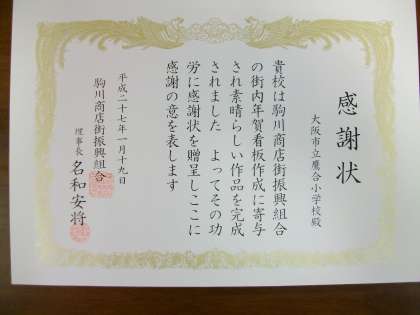 感謝状
大阪市立鷹合小学校殿
貴校は駒川商店街振興組合
の街内年賀看板作成に寄与
され素晴らしい作品を完成
されました　よってその功
労に感謝状を贈呈しここに
感謝の意を表します
平成二十七年一月十九日
駒川商店街振興組合
理事長　名和安将